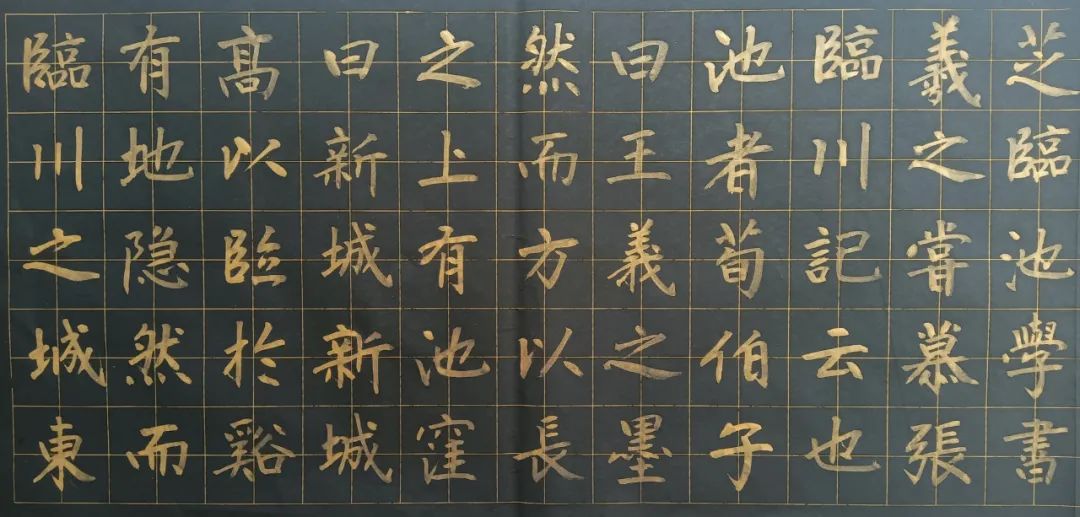 臨川之城東
有地隐然而
髙以臨於谿
曰新城新城
之上有池窪
然而方以長
曰王義之墨
池者荀伯子
臨川記云也
羲之嘗慕張
芝臨池學書